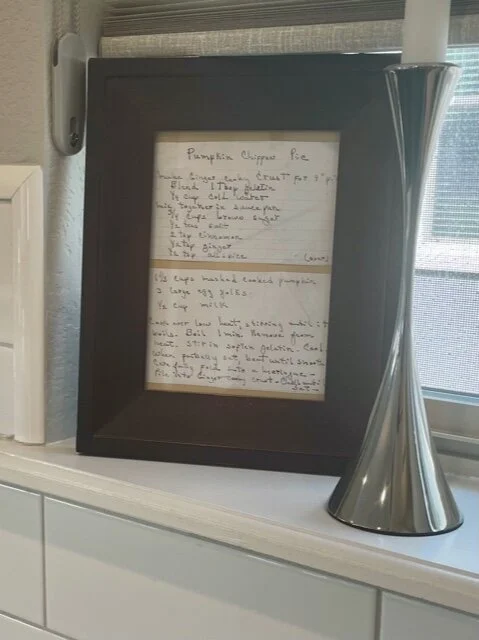 Pumpkin Chiffon Pie
make Ginger cooky Crust for 9" pie
Blend 1 Tbsp gelatin
1/4 cup cold water
mix together in saucepan
3/4 cups brown sugar
1/2 tsp salt
2 tsp cinnamon
1/2 tsp ginger
1/2 tsp allspice (over)
1 1/3 cups mashed cooked pumpkin
3 large egg yolks
1/2 cup milk
Cook over low heat, stirring until it
boils. Boil 1 min. Remove from
heat. Stir in soften gelatin. Cool
when partially set, beat until smooth
Carefully fold into a meringue -
Pile into Ginger cooky crust. Chill until
set -